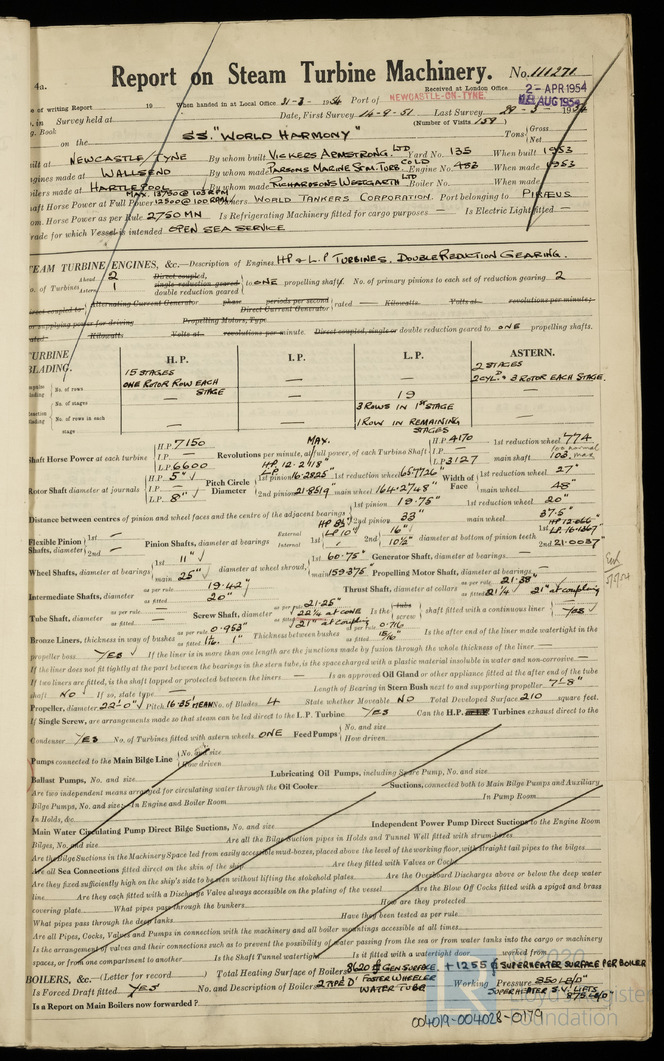 4a.
Report on Steam Turbine Machinery. No. 111271
Received at London Office 2 - APR 1954
AUG 1954
of writing Report 19 When handed in at Local Office 31-3-1954 Port of NEWCASTLE-ON-TYNE
in Survey held at Date, First Survey 14-9-51 Last Survey 29-3-1954
g. Book (Number of Visits 159)
on the S.S. "WORLD HARMONY" Tons Gross Net
ilt at NEWCASTLE/TYNE By whom built VICKERS ARMSTRONG LTD Yard No. 135 When built 1953
gines made at WALLSEND By whom made PARSONS MARINE STM. TURB. CO LD Engine No. 483 When made 1953
oilers made at HARTLEPOOL By whom made RICHARDSONS WESTGARTH LTD Boiler No. When made
haft Horse Power at Full Power MAX. 13750 @ 103 RPM 12500 @ 100 RPM Owners WORLD TANKERS CORPORATION Port belonging to PIRÆUS
om. Horse Power as per Rule 2750 MN Is Refrigerating Machinery fitted for cargo purposes — Is Electric Light fitted —
rade for which Vessel is intended OPEN SEA SERVICE
TEAM TURBINE ENGINES, &c.—Description of Engines HP & L.P TURBINES. DOUBLE REDUCTION GEARING.
o. of Turbines Ahead 2 Astern 1 Direct coupled, single reduction geared double reduction geared to ONE propelling shaft. No. of primary pinions to each set of reduction gearing 2
ect coupled to Alternating Current Generator phase periods per second Direct Current Generator rated Kilowatts Volts at revolutions per minute;
or supplying power for driving Propelling Motors, Type
ated Kilowatts Volts at revolutions per minute. Direct coupled, single or double reduction geared to ONE propelling shafts.
TURBINE BLADING. H.P. I.P. L.P. ASTERN.
No. of rows 15 STAGES ONE ROTOR ROW EACH STAGE — — 2 STAGES 2 CYL. & 3 ROTOR EACH STAGE.
No. of stages — — 19 —
No. of rows in each stage — — 3 ROWS IN 1ST STAGE 1 ROW IN REMAINING STAGES —
Shaft Horse Power at each turbine H.P. 7150 I.P. — L.P. 6600 Revolutions per minute, at full power, of each Turbine Shaft MAX. H.P. 4170 I.P. — L.P. 3127 1st reduction wheel 774 main shaft 103 max
Rotor Shaft diameter at journals H.P. 5" I.P. — L.P. 8" Pitch Circle Diameter 1st pinion HP 12.2118" LP 16.2825" 2nd pinion 21.8519" 1st reduction wheel 65.7726" main wheel 164.2748" Width of Face 1st reduction wheel 27" main wheel 48"
Distance between centres of pinion and wheel faces and the centre of the adjacent bearings 1st pinion 19.75" 2nd pinion 33" 1st reduction wheel 20" main wheel 37.5"
Flexible Pinion Shafts, diameter 1st — 2nd — Pinion Shafts, diameter at bearings External 1st LP 10" Internal 1st 2nd 16" 10½" diameter at bottom of pinion teeth 1st HP 12.066" LP 16.1367" 2nd 21.0037"
Wheel Shafts, diameter at bearings 1st 11" main 25" diameter at wheel shroud, 1st 60.75" main 159.375" Generator Shaft, diameter at bearings — Propelling Motor Shaft, diameter at bearings —
Intermediate Shafts, diameter as per rule 19.42" as fitted 20" Thrust Shaft, diameter at collars as per rule 21.38" as fitted 21¼ 21" at coupling
Tube Shaft, diameter as per rule — as fitted — Screw Shaft, diameter as per rule 21.25" as fitted 22¼ at CONE 21" at coupling Is the tube screw shaft fitted with a continuous liner YES
Bronze Liners, thickness in way of bushes as per rule 0.953" as fitted 1" Thickness between bushes as per rule 0.716 as fitted 15/16" Is the after end of the liner made watertight in the
propeller boss YES If the liner is in more than one length are the junctions made by fusion through the whole thickness of the liner —
If the liner does not fit tightly at the part between the bearings in the stern tube, is the space charged with a plastic material insoluble in water and non-corrosive —
If two liners are fitted, is the shaft lapped or protected between the liners — Is an approved Oil Gland or other appliance fitted at the after end of the tube
shaft NO If so, state type — Length of Bearing in Stern Bush next to and supporting propeller 7'-8"
Propeller, diameter 22'-0" Pitch 16.85' MEAN No. of Blades 4 State whether Moveable NO Total Developed Surface 210 square feet.
If Single Screw, are arrangements made so that steam can be led direct to the L.P. Turbine YES Can the H.P. Turbines exhaust direct to the
Condenser YES No. of Turbines fitted with astern wheels ONE Feed Pumps No. and size How driven
Pumps connected to the Main Bilge Line No. and size How driven
Ballast Pumps, No. and size Lubricating Oil Pumps, including Spare Pump, No. and size
Are two independent means arranged for circulating water through the Oil Cooler Suctions, connected both to Main Bilge Pumps and Auxiliary
Bilge Pumps, No. and size:- In Engine and Boiler Room In Pump Room
In Holds, &c.
Main Water Circulating Pump Direct Bilge Suctions, No. and size Independent Power Pump Direct Suctions to the Engine Room
Bilges, No. and size Are all the Bilge Suction pipes in Holds and Tunnel Well fitted with strum-boxes
Are the Bilge Suctions in the Machinery Space led from easily accessible mud-boxes, placed above the level of the working floor, with straight tail pipes to the bilges
Are all Sea Connections fitted direct on the skin of the ship Are they fitted with Valves or Cocks
Are they fixed sufficiently high on the ship's side to be seen without lifting the stokehold plates Are the Overboard Discharges above or below the deep water
line Are they each fitted with a Discharge Valve always accessible on the plating of the vessel Are the Blow Off Cocks fitted with a spigot and brass
covering plate What pipes pass through the bunkers How are they protected
What pipes pass through the deep tanks Have they been tested as per rule
Are all Pipes, Cocks, Valves and Pumps in connection with the machinery and all boiler mountings accessible at all times
Is the arrangement of valves and their connections such as to prevent the possibility of water passing from the sea or from water tanks into the cargo or machinery
spaces, or from one compartment to another Is the Shaft Tunnel watertight Is it fitted with a watertight door worked from
BOILERS, &c.—(Letter for record ) Total Heating Surface of Boilers 8620 GEN SURFACE. + 1255 SUPERHEATER SURFACE PER BOILER
Is Forced Draft fitted YES No. and Description of Boilers 2 TYPE 'D' FOSTER WHEELER WATER TUBE Working Pressure 850 LB/□" SUPERHEATER S.V. LIFTS 875 LB/□"
Is a Report on Main Boilers now forwarded?
© 2020
Lloyd's Register
Foundation
004019-004028-0179